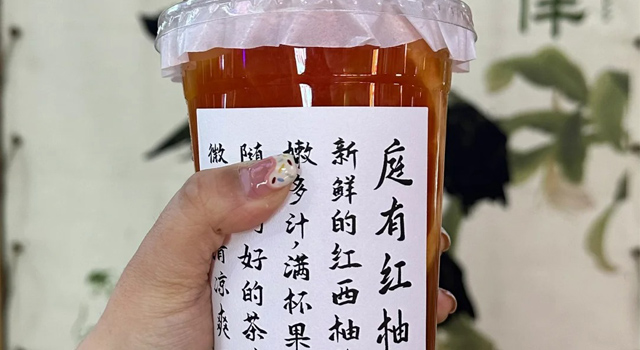 庭有红柚
新鲜的红西柚
嫩多汁,满杯果
随
好的茶
微
凉爽